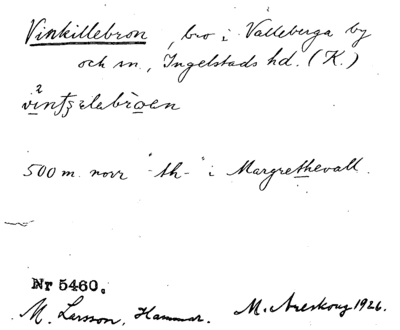 Vinkillebron, bro i Valleberga by
och sn, Ingelstads hd. (K.)
500 m. norr "-th-" i Margrethevall.
Nr 5460.
M. Larsson, Hammar. M. Areskoug 1926.